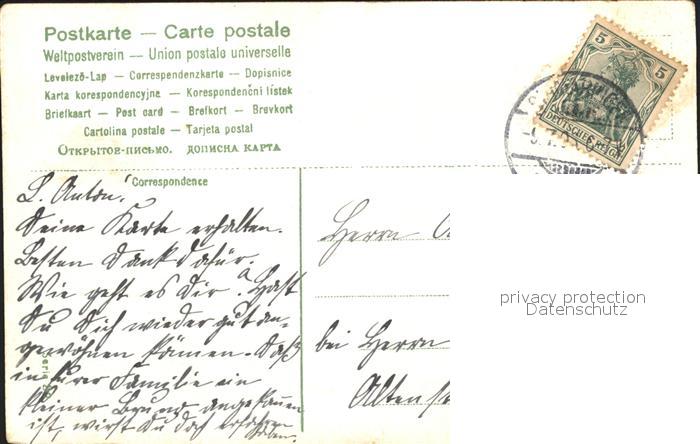 Postkarte — Carte postale
Weltpostverein — Union postale universelle
Levelező-Lap — Correspondenzkarte — Dopisnice
Karta korespondencyjna — Korespondenční lístek
Briefkaart — Post card — Brefkort — Brevkort
Cartolina postale — Tarjeta postal
Открытое-письмо. дописна карта
5
5
DEUTSCHES REICH
Correspondence
L. Anton!
Deine Karte erhalten.
Besten Dank dafür.
Wie geht es Dir? Hast
Du Dich wieder gut an-
gewöhnen können. Daß
in Eurer Familie ein
kleiner Bruno angekommen
ist, wirst Du doch erfahren
haben.
Herrn
bei Herrn
privacy protection
Datenschutz